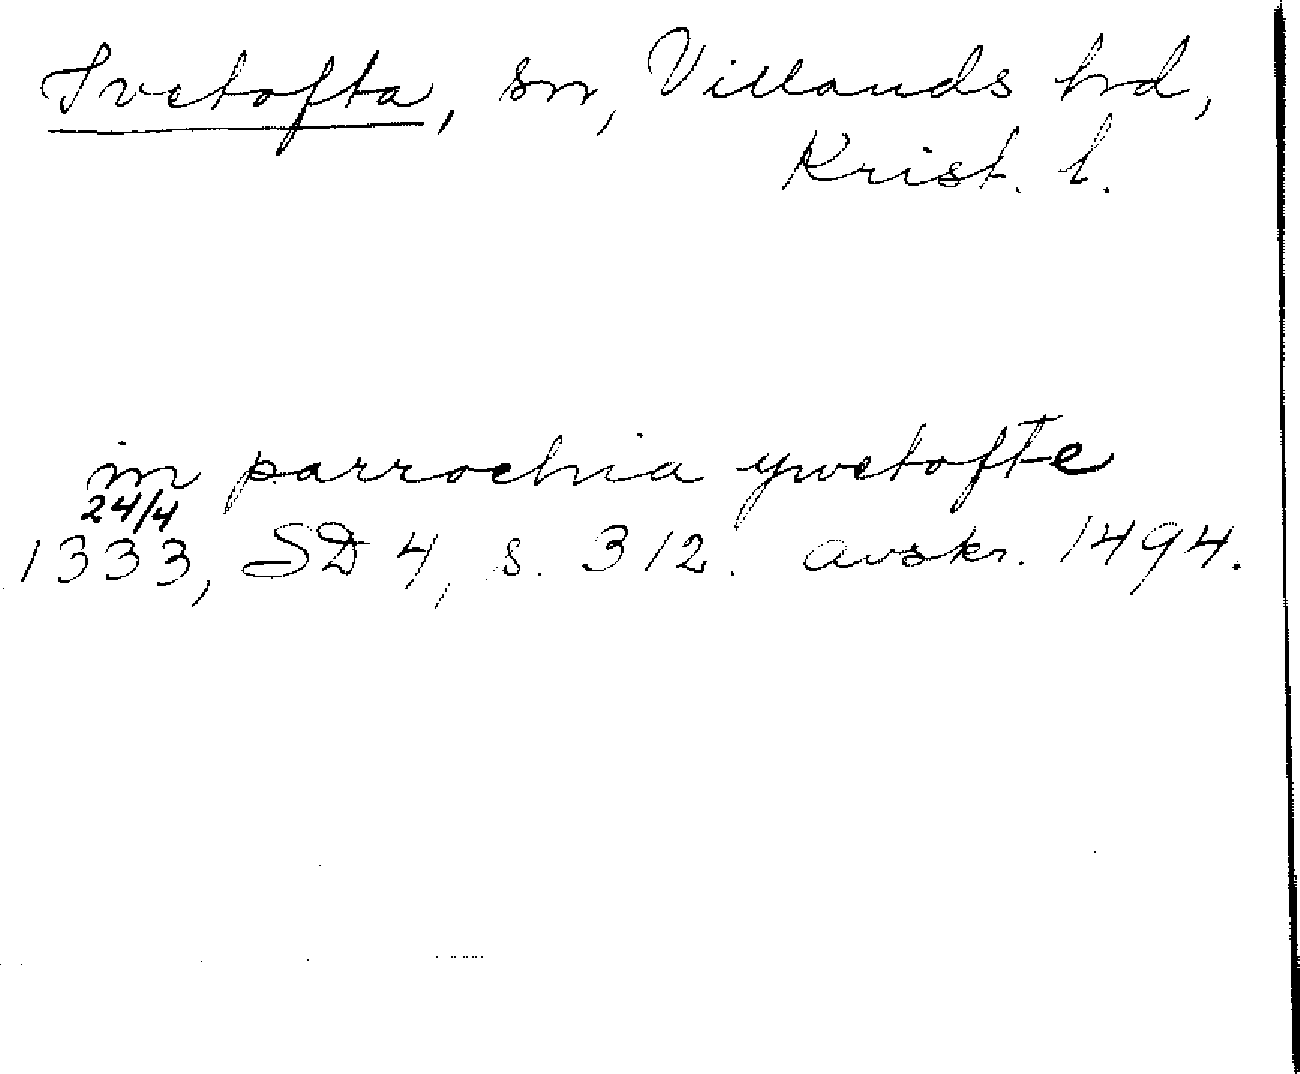 Ivetofta, sn, Villands hd,
Krist. l.
in parrochia ywetofte
24/4
1333, SD 4, s. 312. avskr. 1494.